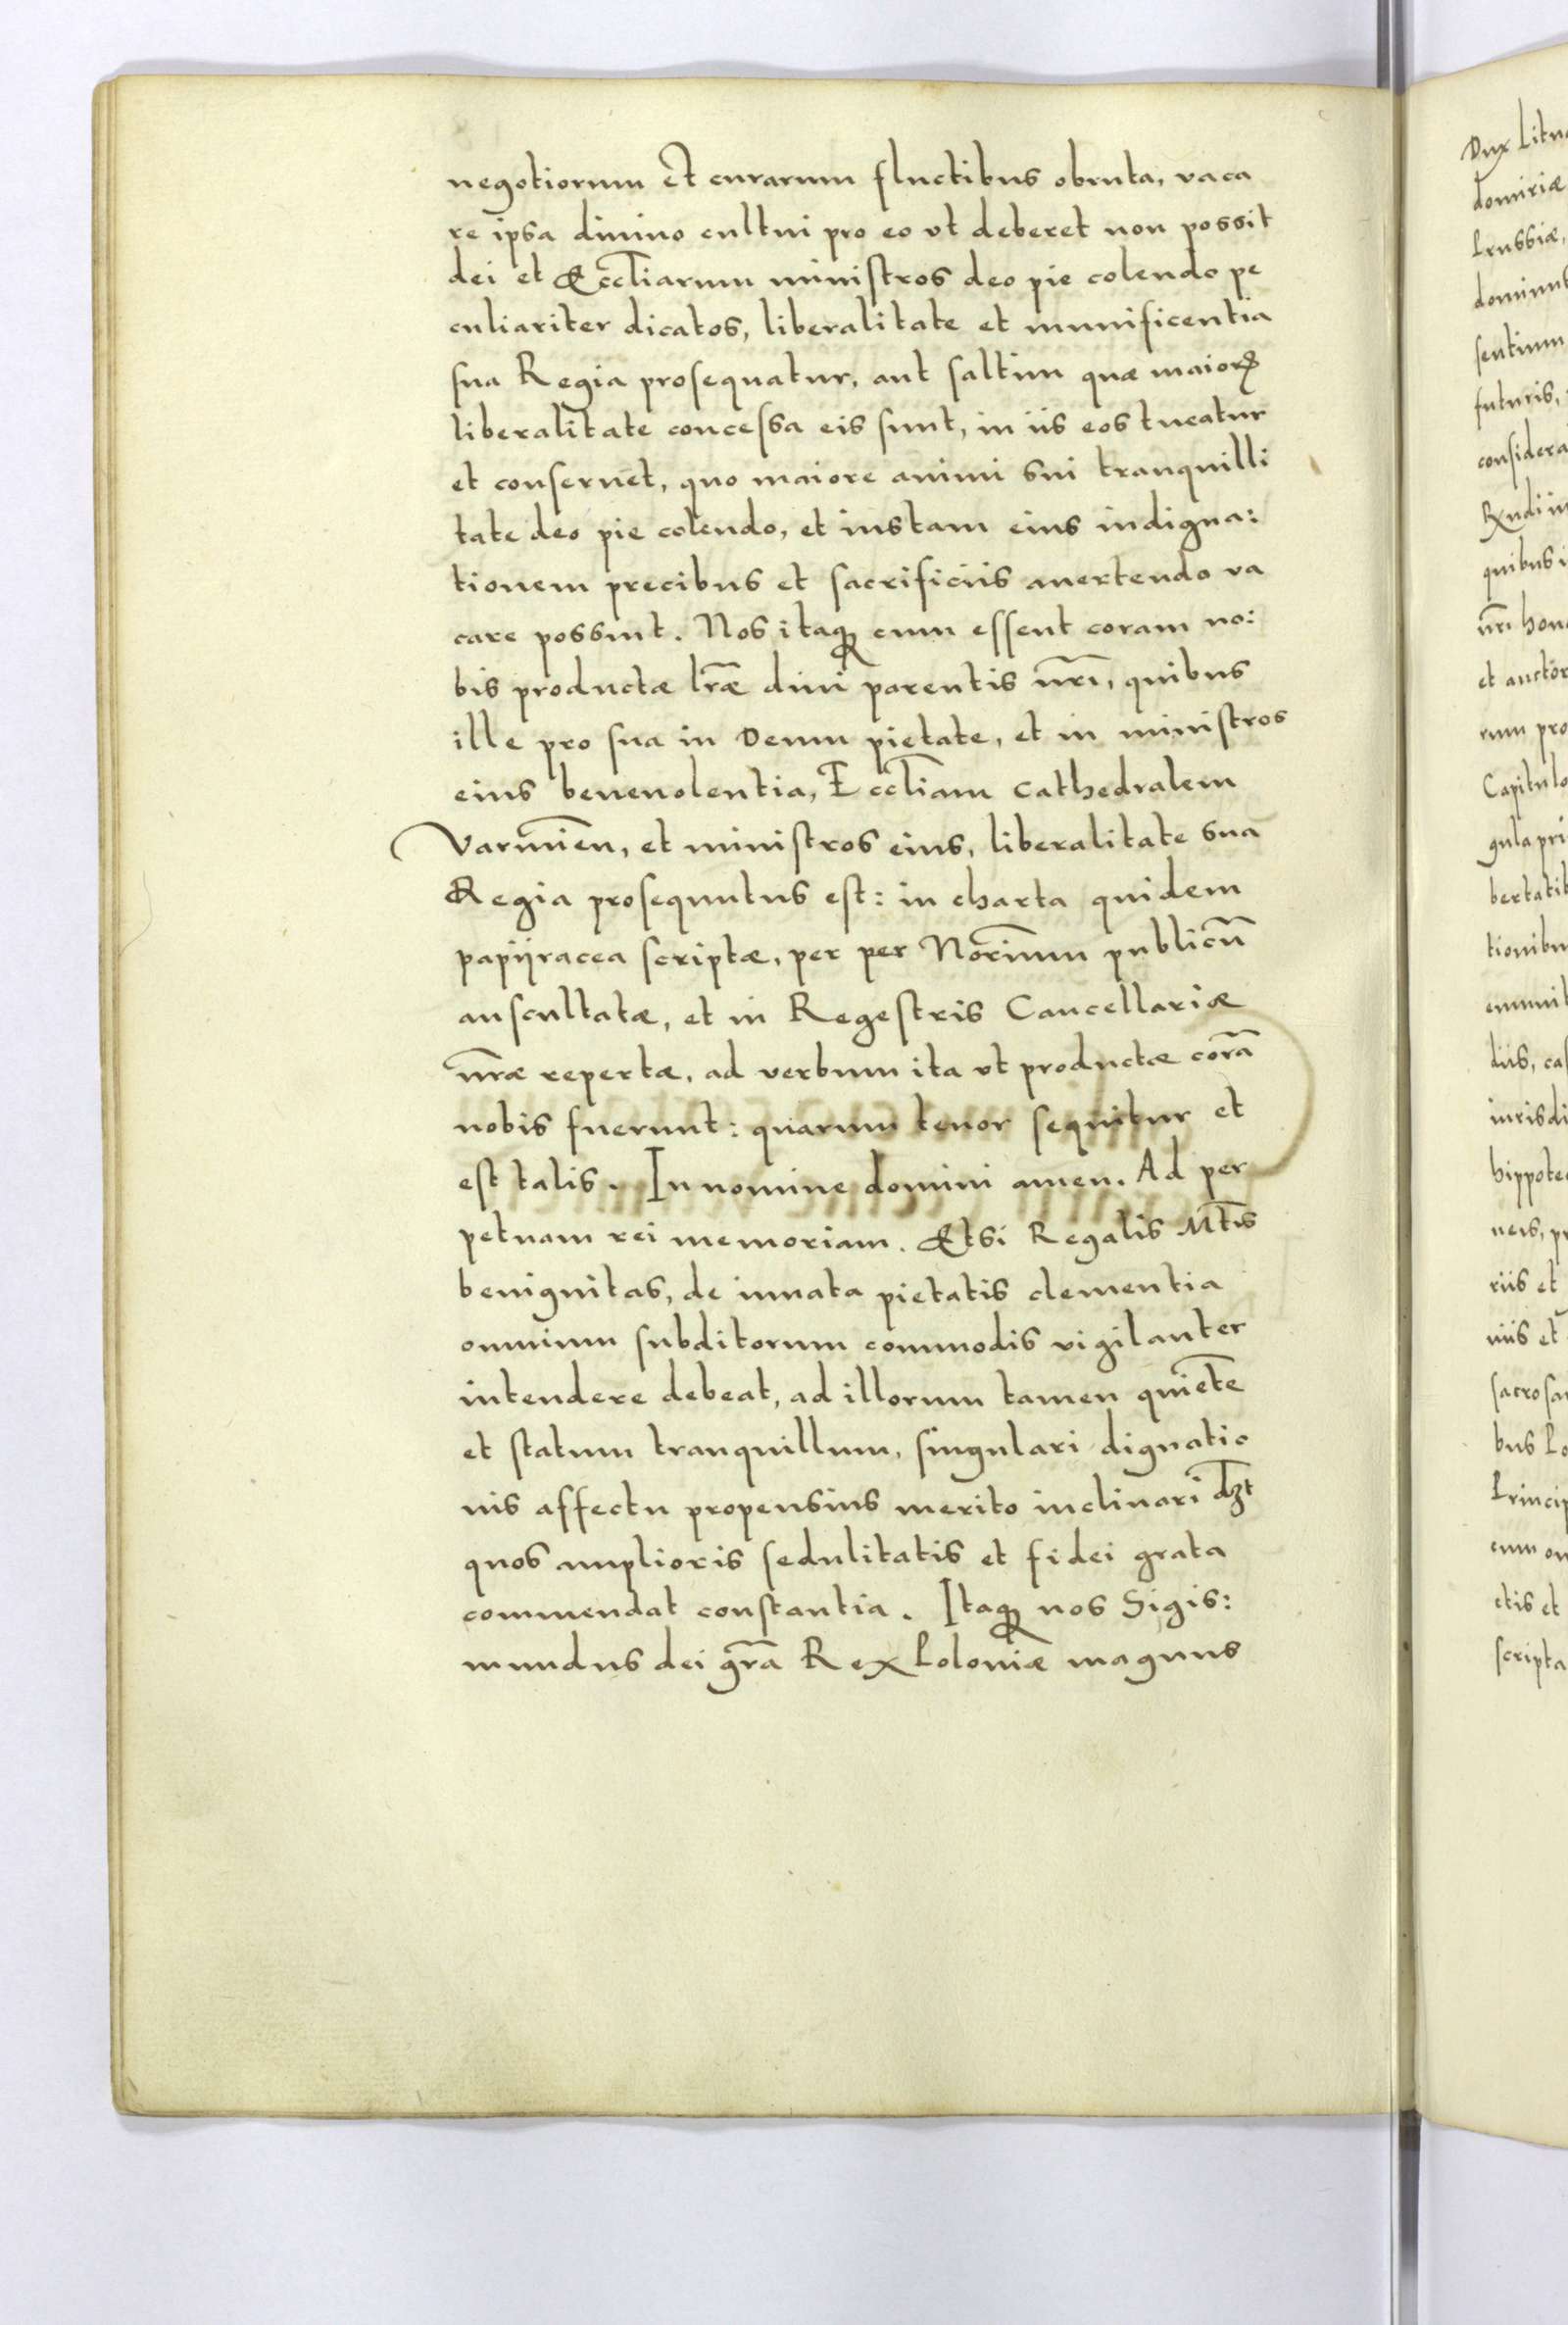 negotiorum et curarum fluctibus obruta, vaca
re ipsa diuino cultui pro eo vt deberet non possit
dei et Eccl̃iarum ministros deo pie colendo pe
culiariter dicatos, liberalitate et munificentia
sua Regia prosequatur, aut saltim quæ maioꝝ
liberalitate concessa eis sunt, in iis eos tueatur
et conseruet, quo maiore animi sui tranquilli
tate deo pie colendo, et iustam eius indigna:
tionem precibus et sacrificiis auertendo va
care possint. Nos itaqꝫ cum essent coram no:
bis productæ lr̃æ diui parentis nr̃i, quibus
ille pro sua in Deum pietate, et in ministros
eius beneuolentia, Eccl̃iam Cathedralem
Varmieñ, et ministros eius, liberalitate sua
Regia prosequutus est: in charta quidem
papijracea scriptæ, per per Nor̃ium publicũ
auscultatæ, et in Regestris Cancellariæ
nr̃æ repertæ, ad verbum ita vt productæ corã
nobis fuerunt: quarum tenor sequitur et
est talis. In nomine domini amen. Ad per
petuam rei memoriam. Etsi Regalis Mt̃is
benignitas, de innata pietatis clementia
omnium subditorum commodis vigilanter
intendere debeat, ad illorum tamen quietẽ
et statum tranquillum, singulari dignatio
nis affectu propensius merito inclinari dꝫt
quos amplioris sedulitatis et fidei grata
commendat constantia. Itaqꝫ nos Sigis:
mundus dei gr̃a Rex Poloniæ magnus
Dux Litu
domiriæ
Prussiæ,
dominus
sentium
futuris,
considera
quibus i
nr̃i hon
et auctor
rum pro
Capitulo
gula pri
bertatib
tionibu
emunit
liis, ca
iurisdi
hippote
neis, pr
riis et
niis et
sacrosa
bus Lo
Princip
cum om
etis et
scripta